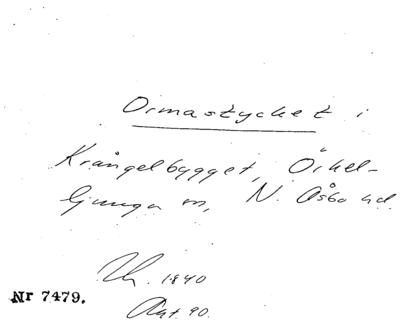 Ormastycket i
Krångelbygget, Örkel-
ljunga sn, N. Åsbo hd.
Uh. 1840
Nr 7479.
Akt. 90.